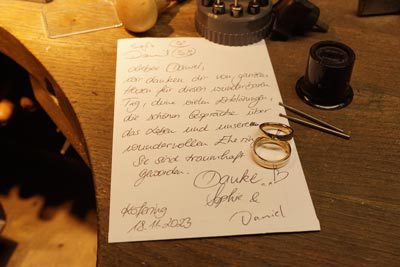 wir danken dir von ganzem
Herzen für diesen wunderbaren
Tag, deine vielen Erklärungen,
die schönen Gespräche über
das Leben und unsere
wundervollen Eheringe
Sie sind traumhaft
geworden.
Danke
Sophie &
Daniel
18.11.2023